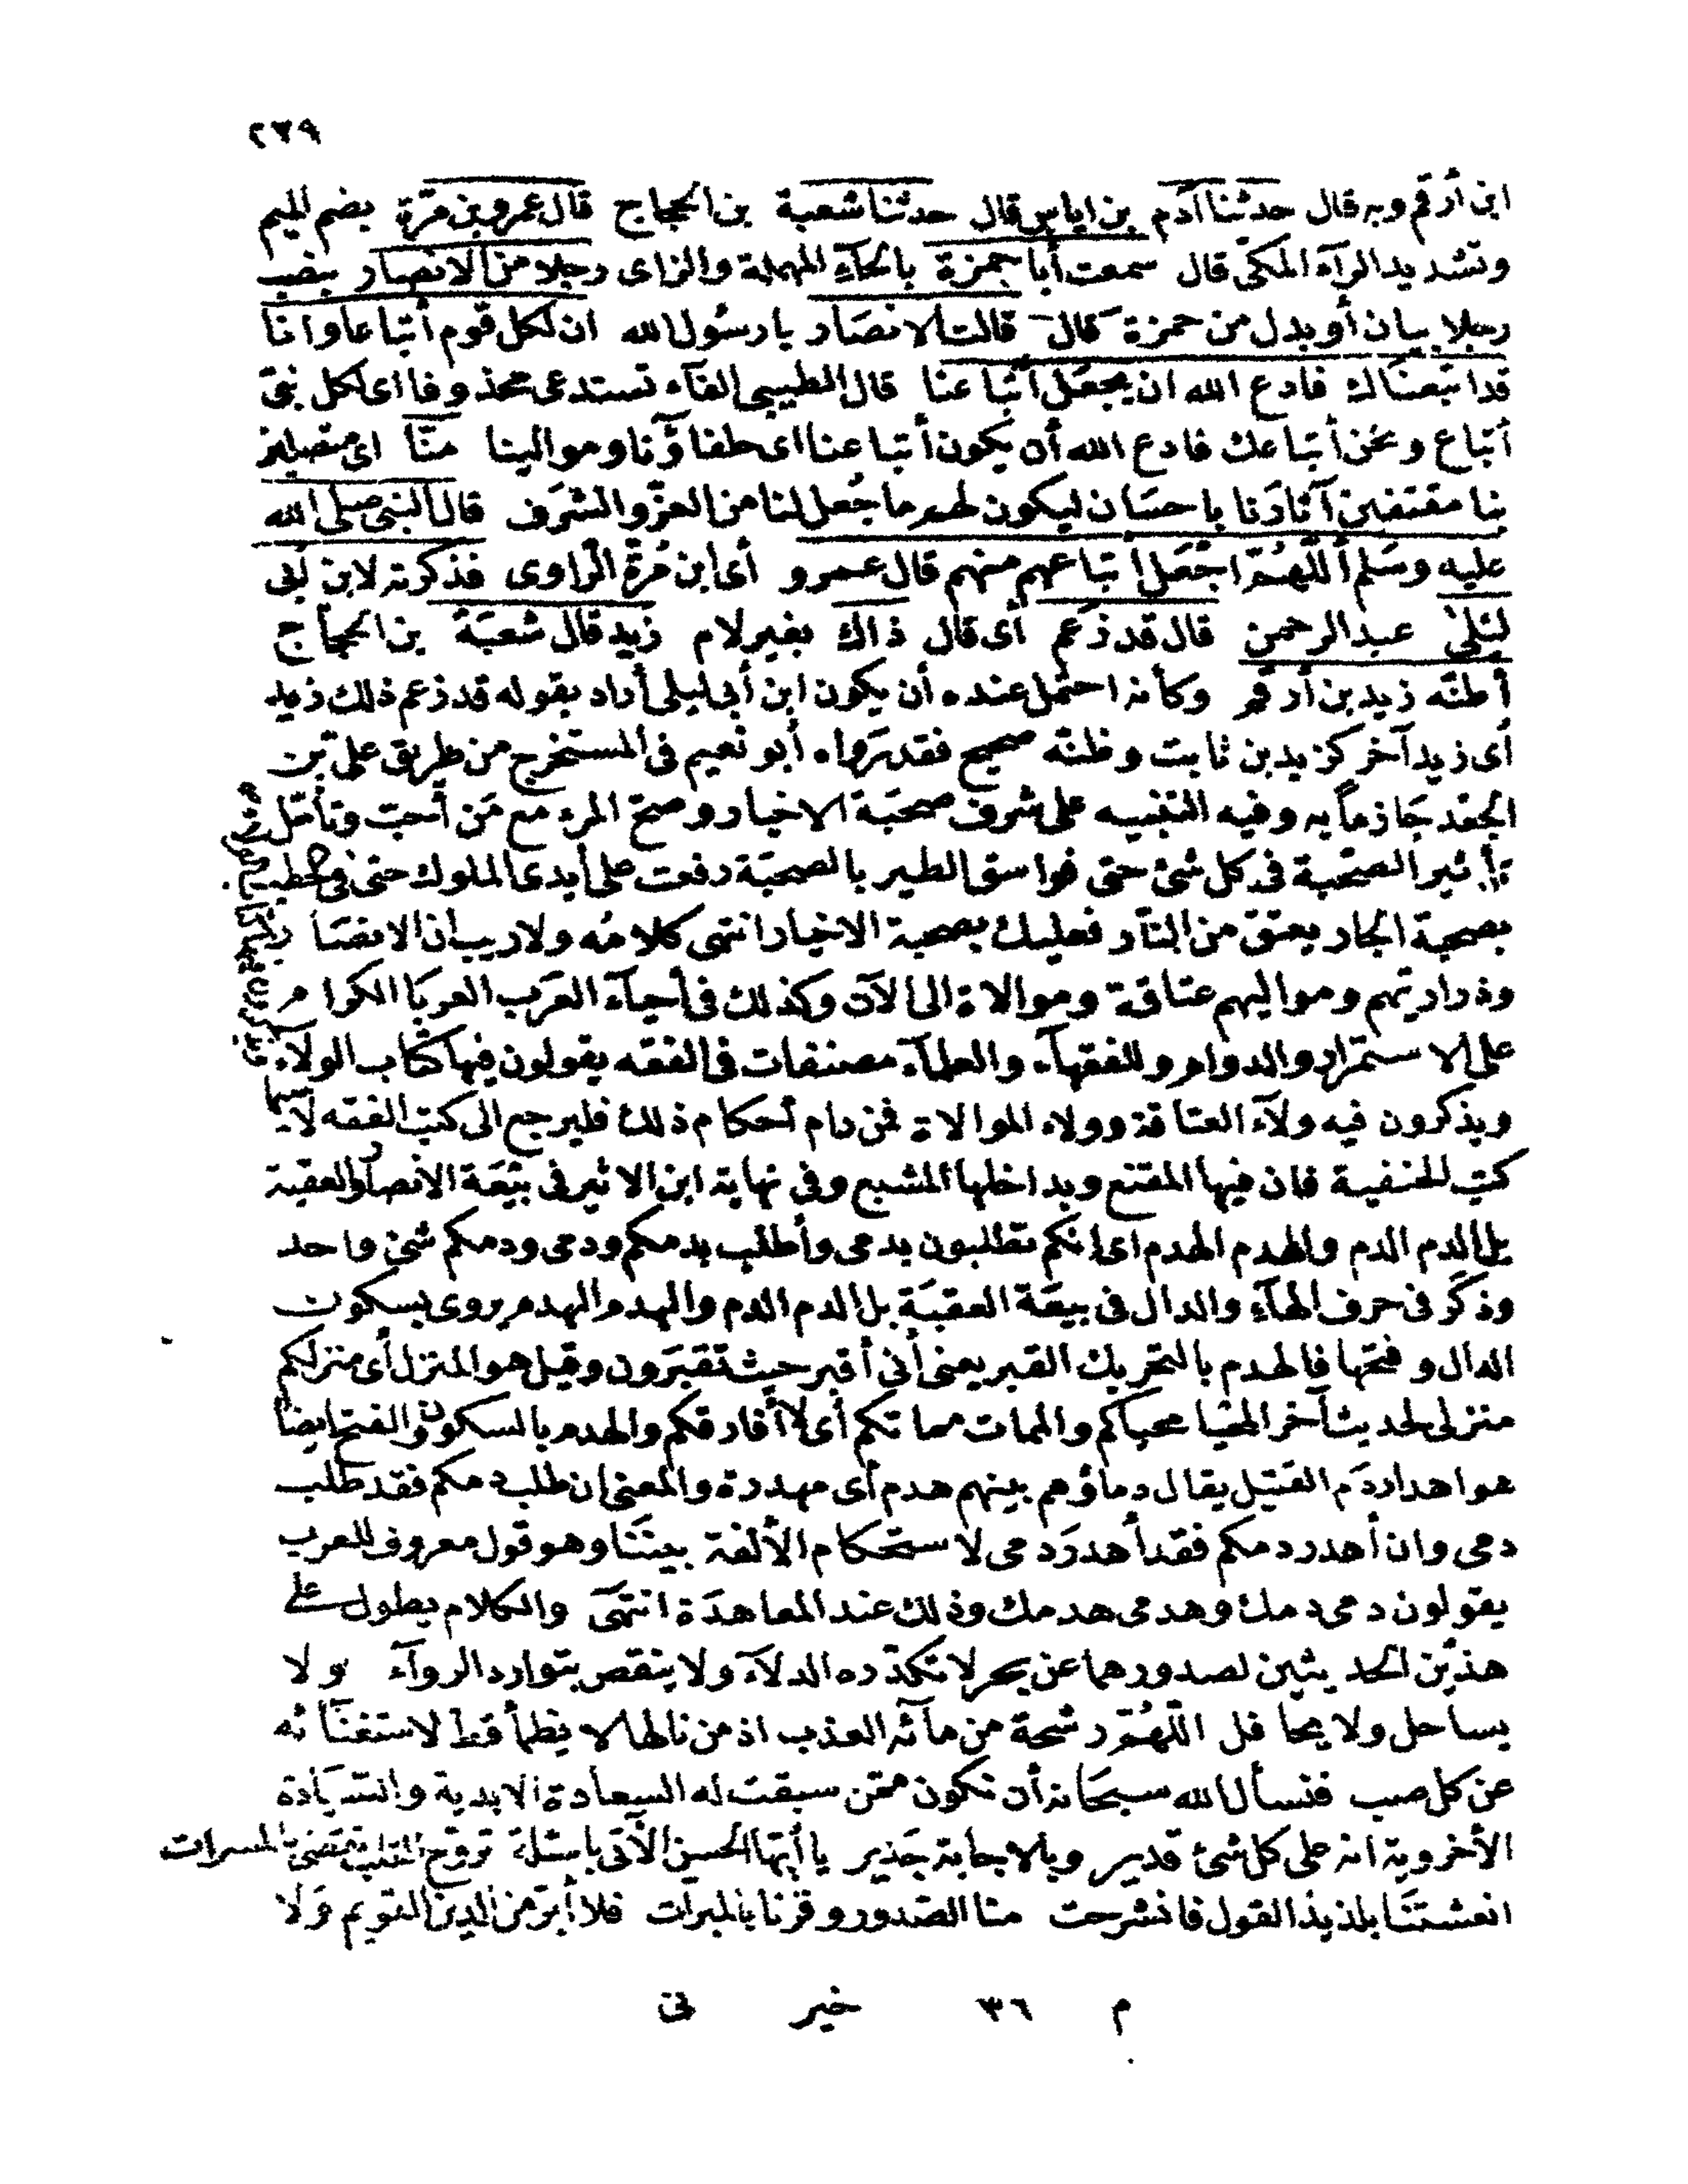 ٢٧٩
ابن أرقم وبه قال حدثنا آدم بن اياس قال حدثنا شعبة بن الحجاج قال عمرو بن مرّة بضم الميم
وتشديد الرآء المكى قال سمعت أبا حمزة بالحآء المهملة والزاى رجلا من الانصار بنصب
رجلا بيان أو بدل من حمزة قال قالت الانصار يا رسول الله ان لكل قوم أتباعا وانا
قد اتبعناك فادع الله ان يجعل أتباعنا قال الطيبى الفآء تستدعى محذوفا اى لكل نبىّ
أتباع ونحن أتباعك فادع الله أن يكون أتباعنا اى حلفاؤنا وموالينا منّا اى متصلين
بنا مقتفين آثارنا باحسان ليكون لهم ما جُعل لنا من العزّ والشرف قال النبى صلى الله
عليه وسَلم أللّهُمّ اجْعَل أتباعهم منهم قال عمرو أى ابن مُرّة الراوى فذكرته لابن أبى
ليلىْ عبد الرحمن قال قد زعم أى قال ذاك بغير لام زيد قال شعبَة بن الحجاج
أظنّه زيد بن أرقم وكأنه احتمل عنده أن يكون ابن أبى ليلى أراد بقوله قد زعم ذلك زيد
أى زيد آخر كزيد بن ثابت وظنّه صحيح فقد رَواه أبو نعيم فى المستخرج من طريق على بن
الجعْد جَازماً به وفيه التنبيه على شرف صحبَة الاخيار وصحّ المرء مع مَن أحبّ وتأمّل
تأثير الصّحبة فى كل شئ حتى فواسق الطير بالصحبَة رفعت على أيدى الملوك حتى فى الحطب
بصحبة الجار يعتق من النّار فعليك بصحبة الاخيار انتهى كلامُه ولا ريب ان الانصَا ر
وذراريّهم ومواليهم عتاقة وموالاة الى الآن وكذلك فى أحيآء العرَب العربَا الكرا م
على الاستمرار والدوام وللفقهآء والعلمآء مصنفات فى الفقه يقولون فيها كتاب الولآء
ويذكرون فيه ولآء العتاقة وولاء الموالاة فمن رام أحكام ذلك فليرجع الى كتب الفقه لاسيما
كتب الحنفية فان فيها المقنع وبداخلها المشبع وفى نهاية ابن الاثير فى بيْعَة الانصار والعقبة
بل الدم الدم والهدم الهدم اى انكم تطلبون بدمى وأطلب بدمكم ودمى ودمكم شئ واحد
وذكَر فى حرف الهآء والدال فى بيعَة العقبَة بل الدم الدم والهدم الهدم يروى بسكون
الدال وفتحها فالهدم بالتحريك القبر يعنى أنى أقبر حيث تقبَرون وقيل هو المنزل أى منزلكم
منزلى لحديث آخر المحيا محياكم والممات مماتكم أى لا أفارقكم والهدم بالسكون والفتح ايضا
هو اهدار دَم القتيل يقال دماؤهم بينهم هدم أى مهدرة والمعنى ان طلب دمكم فقد طلب
دمى وان أهدر دمكم فقد أهدرَ دمى لاستحكام الألفة بينَنا وهو قول معروف للعرب
يقولون دمى دمك وهدمى هدمك وذلك عند المعاهدَة انتهَى والكلام يطول على
هذَين الحديثين لصدورهما عن بحر لا تكدّره الدلآء ولا ينقص بتوارد الروآء ولا
يساحل ولا يحا فل اللّهُمّ رشحة من مآئه العذب اذ من نالها لا يظمأ قط لاستغنآئه
عن كل صب فنسأل الله سبحَانه أن نكون ممّن سبقت له السعادة الابدية والسيَادة
الأخروية انه على كل شئ قدير وبالاجابة جَدير يا أيّها الحسن الآتى باسئلة تروّح القلب تقضى المسرات
انعشتنَا بلذيذ القول فانشرحت منا الصّدور وقرنا بالمبرآت فلا أبرّ من الدين القويم وَلا
م ٣٦ خير نى